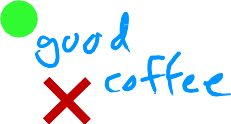 good
coffee